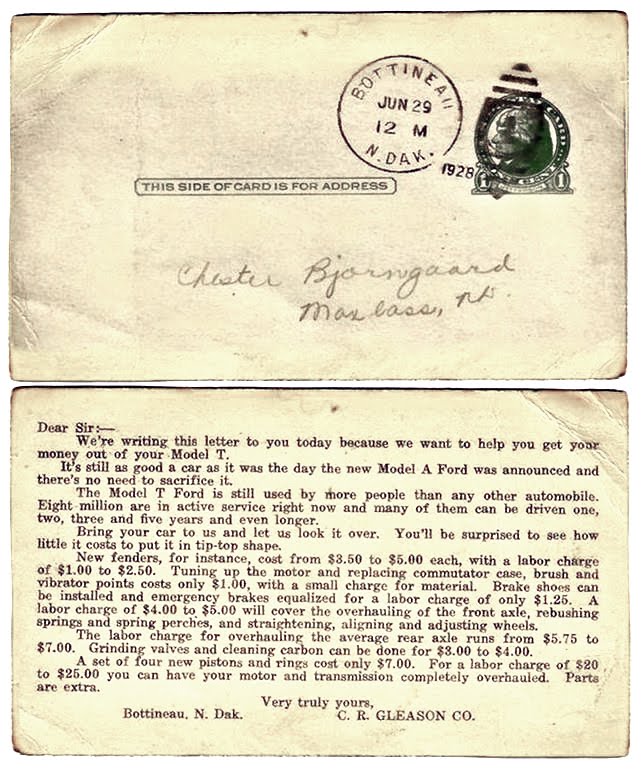 BOTTINEAU
JUN 29
12 M
N. DAK.
1928
1 1
THIS SIDE OF CARD IS FOR ADDRESS
Chester Bjorngaard
Maxbass, N.D.
Dear Sir:—
We're writing this letter to you today because we want to help you get your
money out of your Model T.
It's still as good a car as it was the day the new Model A Ford was announced and
there's no need to sacrifice it.
The Model T Ford is still used by more people than any other automobile.
Eight million are in active service right now and many of them can be driven one,
two, three and five years and even longer.
Bring your car to us and let us look it over. You'll be surprised to see how
little it costs to put it in tip-top shape.
New fenders, for instance, cost from $3.50 to $5.00 each, with a labor charge
of $1.00 to $2.50. Tuning up the motor and replacing commutator case, brush and
vibrator points costs only $1.00, with a small charge for material. Brake shoes can
be installed and emergency brakes equalized for a labor charge of only $1.25. A
labor charge of $4.00 to $5.00 will cover the overhauling of the front axle, rebushing
springs and spring perches, and straightening, aligning and adjusting wheels.
The labor charge for overhauling the average rear axle runs from $5.75 to
$7.00. Grinding valves and cleaning carbon can be done for $3.00 to $4.00.
A set of four new pistons and rings cost only $7.00. For a labor charge of $20
to $25.00 you can have your motor and transmission completely overhauled. Parts
are extra.
Very truly yours,
Bottineau, N. Dak. C. R. GLEASON CO.